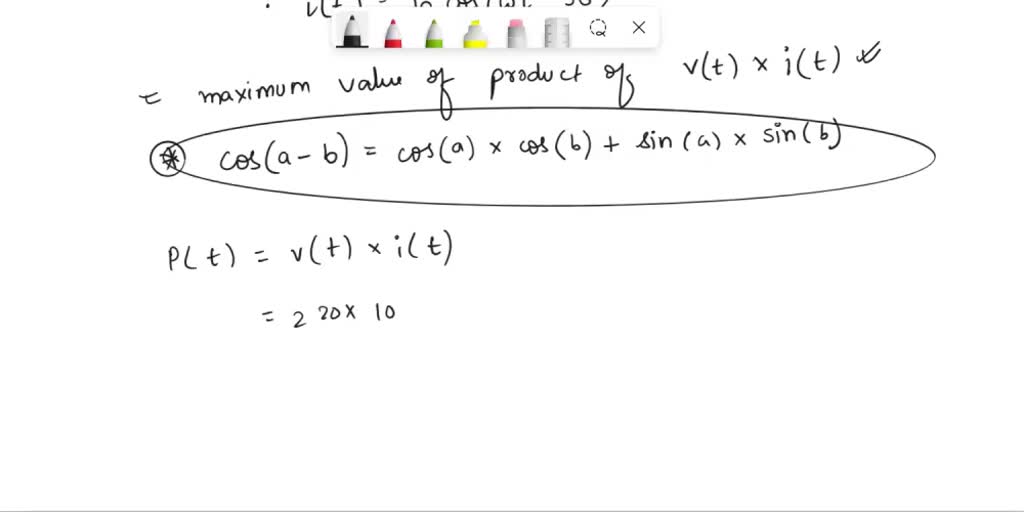 = maximum value of product of v(t) × i(t)
* cos(a - b) = cos(a) × cos(b) + sin(a) × sin(b)
P(t) = v(t) × i(t)
= 220 × 10